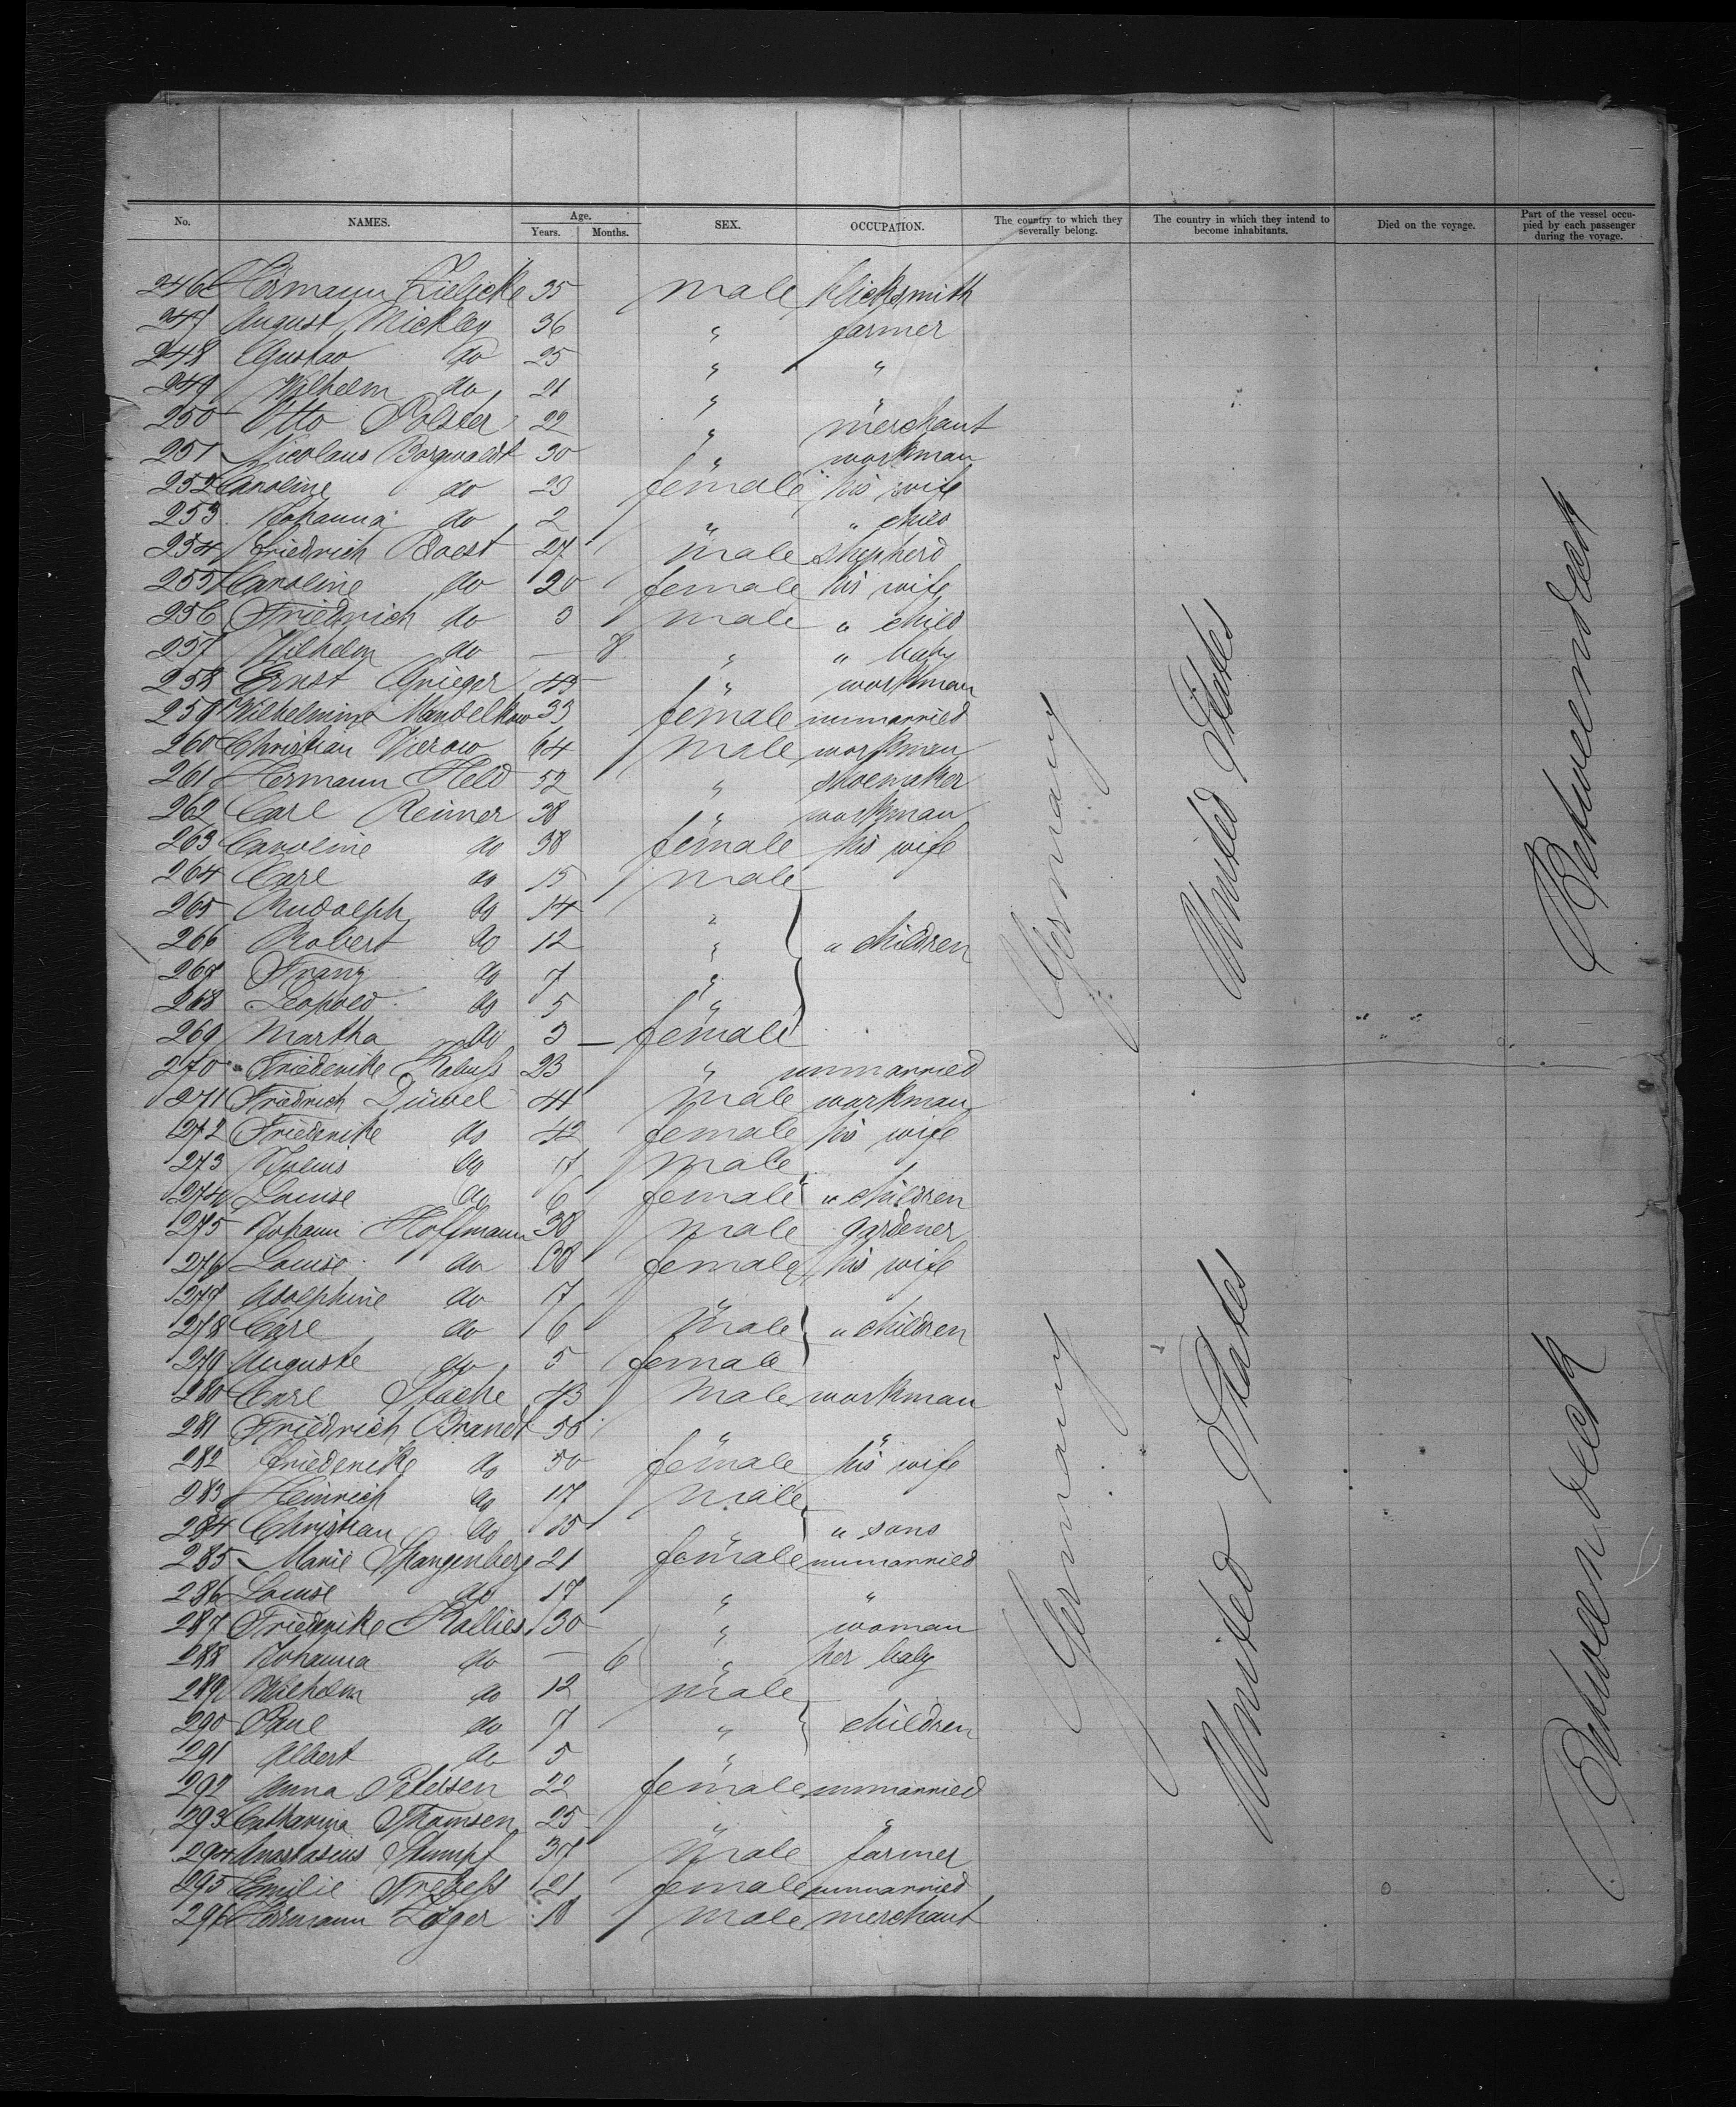 No. NAMES. Age. Years. Months. SEX. OCCUPATION. The country to which they severally belong. The country in which they intend to become inhabitants. Died on the voyage. Part of the vessel occupied by each passenger during the voyage.
246 Hermann 35 male blicksmith
247 August Mickley 36 " farmer
248 Gustav do 25 " "
249 Wilhelm do 21 " "
250 Otto Polster 22 " merchant
251 Nicolaus Borgwaldt 30 " workman
252 Caroline do 23 female his wife
253 Johanna do 2 " " child
254 Friedrich 27 male shepherd
255 Caroline do 20 female his wife
256 Friedrich do 3 male " child
257 Wilhelm do — 8 " " baby
258 Ernst Grieger 45 " workman
259 Wilhelmine Mandelkow 33 female unmarried
260 Christian Vierow 64 male workman
261 Hermann Held 52 " shoemaker
262 Carl Reimer 38 " workman
263 Caroline do 38 female his wife
264 Carl do 15 male
265 Rudolph do 14 "
266 Robert do 12 " " children
267 Franz do 7 "
268 Leopold do 5 "
269 Martha do 3 — female
270 Friederike 23 " unmarried
271 Friedrich Düwel 41 male workman
272 Friederike do 42 female his wife
273 Julius do 17 male
274 Louise do 6 female " children
275 Johann Hoffmann 38 male gardener
276 Louise do 38 female his wife
277 Adolphine do 7 "
278 Carl do 6 male " children
279 Auguste do 5 female
280 Carl Stache 43 male workman
281 Friedrich Brandt 50 " "
282 Friederike do 50 female his wife
283 Heinrich do 17 male
284 Christian do 15 " " sons
285 Marie Spangenberg 21 female unmarried
286 Louise do 17 " "
287 Friederike Kallies 30 " woman
288 Johanna do — 6 " her baby
289 Wilhelm do 12 male
290 Paul do 7 " children
291 Albert do 5 "
292 Anna Petersen 22 female unmarried
293 Catharina Thomsen 25 " "
294 Anastasius Stumpf 37 male farmer
295 Emilie 21 female unmarried
296 Hermann 18 male merchant
Germany
United States
Betweendeck
Germany
United States
Betweendeck